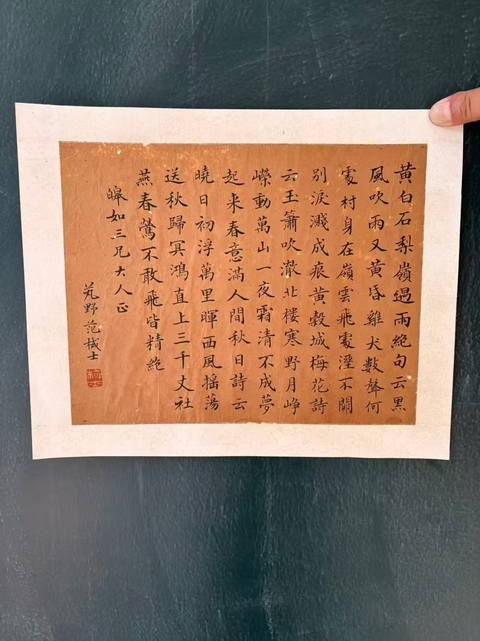 黄白石梨嶺遇雨絶句云黒
風吹雨又黄昏雞犬數聲何
處村身在嶺雲飛處溼不關
別淚濺成痕黄縠城梅花詩
云玉簫吹澈北楼寒野月崢
嶸動萬山一夜霜清不成夢
起来春意滿人間秋日詩云
曉日初浮萬里暉西風揺蕩
送秋歸冥鴻直上三千丈社
燕春鶯不敢飛皆精絶
皞如三兄大人正
芃野范棫士